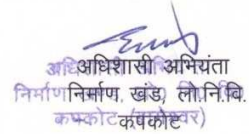 अधिशासी अभियंता
निर्माण खंड, लो.नि.वि.
कपकोट